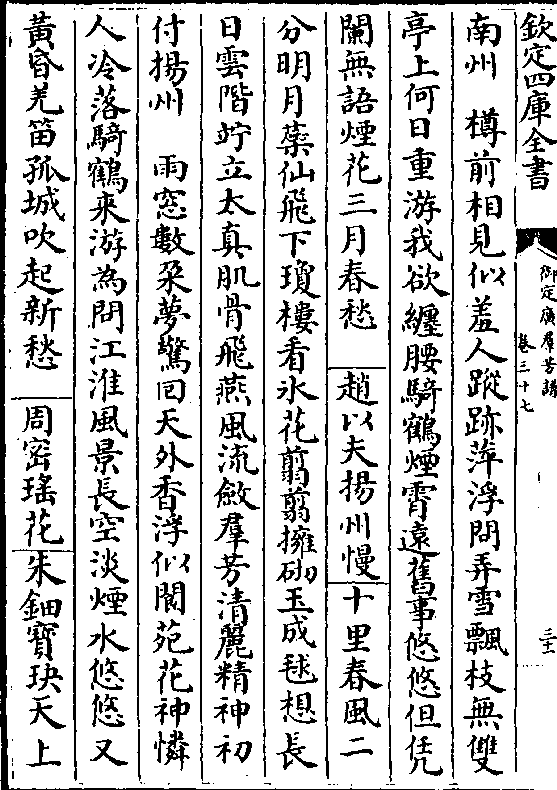 欽定四庫全書
御定廣羣芳譜
卷三十七
三十
南州　樽前相見似羞人蹤跡萍浮問弄雪飄枝無雙
亭上何日重游我欲纏腰騎鶴煙霄遠舊事悠悠但凭
闌無語煙花三月春愁　趙以夫揚州慢十里春風二
分明月蘂仙飛下瓊樓看冰花翦翦擁砌玉成毬想長
日雲階竚立太真肌骨飛燕風流斂羣芳清麗精神初
付揚州　雨窓數朶夢驚回天外香浮似閬苑花神憐
人冷落騎鶴來游為問江淮風景長空淡煙水悠悠又
黃昏羌笛孤城吹起新愁　周密瑤花朱鈿寶玦天上